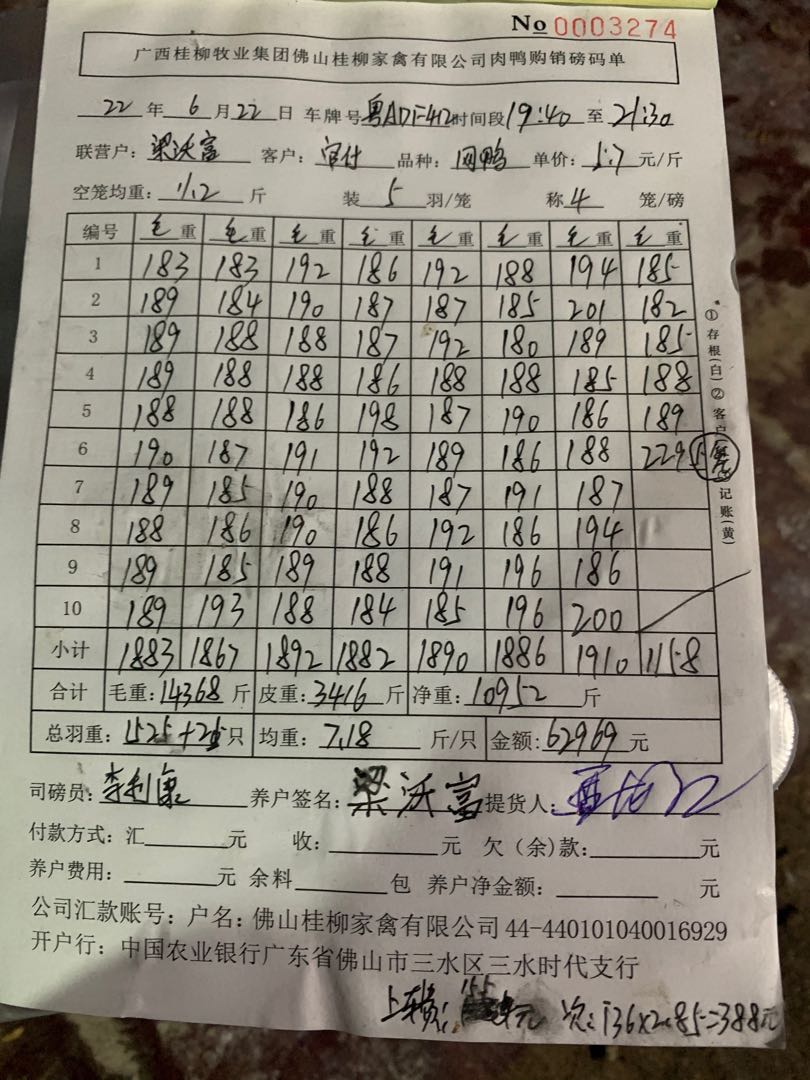 No 0003274
广西桂柳牧业集团佛山桂柳家禽有限公司肉鸭购销磅码单
22 年 6 月 22 日 车牌号 粤AD 412 时间段 19:40 至 21:30
联营户: 梁沃富 客户: 品种: 单价: 5.7 元/斤
空笼均重: 11.2 斤 装 5 羽/笼 称 4 笼/磅
编号 毛重 毛重 毛重 毛重 毛重 毛重 毛重 毛重
1 183 183 192 186 192 188 194 185
2 189 184 190 187 187 185 201 182
3 189 188 188 187 192 180 189 185
4 189 188 188 186 188 188 185 188
5 188 188 186 198 187 190 186 189
6 190 187 191 192 189 186 188 229
7 189 185 190 188 187 191 187
8 188 186 190 186 192 186 194
9 189 185 189 188 191 196 186
10 189 193 188 184 185 196 200
小计 1883 1867 1892 1882 1890 1886 1910 1158
合计 毛重: 14368 斤 皮重: 3416 斤 净重: 10952 斤
总羽重: 1525+ 只 均重: 7.18 斤/只 金额: 62969 元
①存根(白)②客户 记账(黄)
司磅员: 李利康 养户签名: 梁沃富 提货人:
付款方式: 汇 元 收: 元 欠(余)款: 元
养户费用: 元 余料 包 养户净金额: 元
公司汇款账号: 户名: 佛山桂柳家禽有限公司 44-440101040016929
开户行: 中国农业银行广东省佛山市三水区三水时代支行
155 元 136×2.85=388元